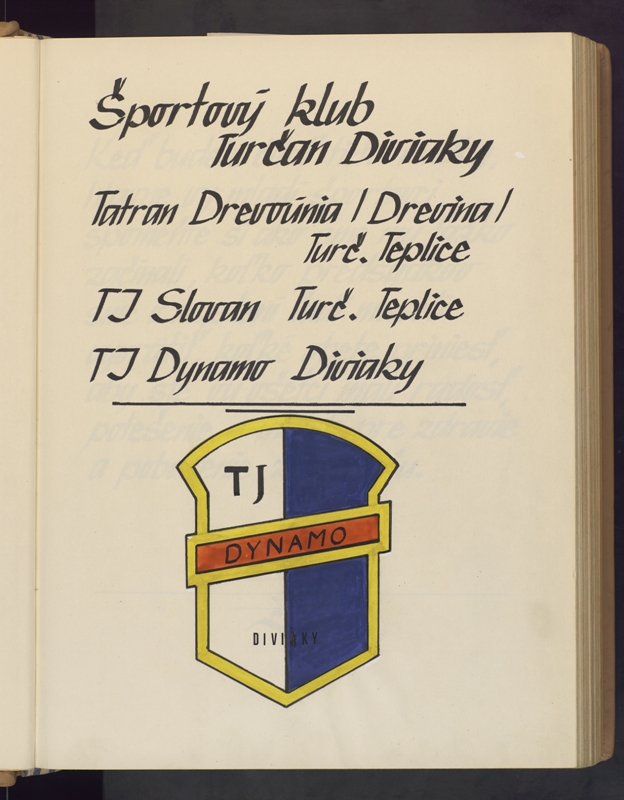 Športový klub
Turčan Diviaky
Tatran Drevoúnia / Drevina /
Turč. Teplice
TJ Slovan Turč. Teplice
TJ Dynamo Diviaky
TJ
DYNAMO
DIVIAKY